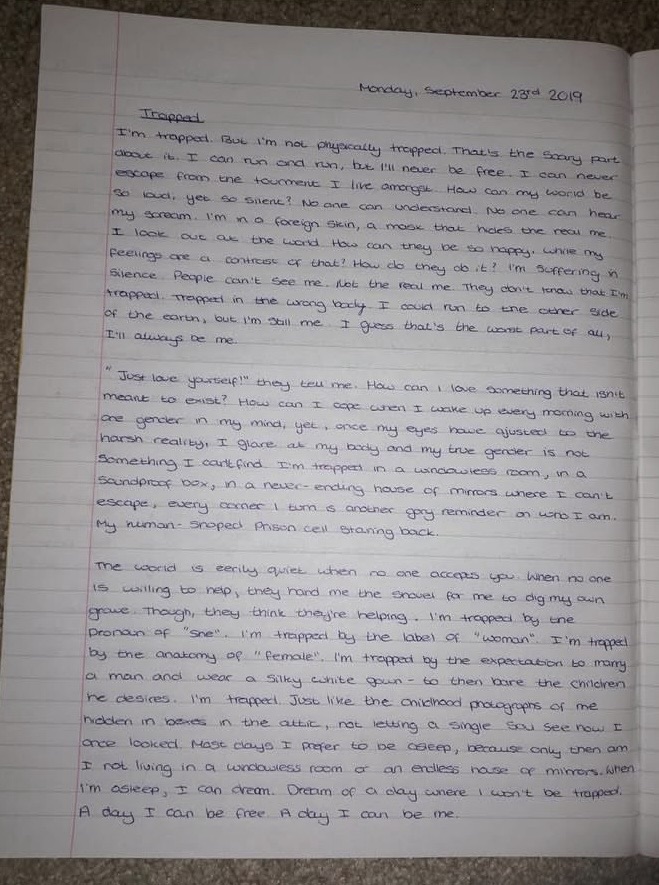 Monday, September 23rd 2019
Trapped
I'm trapped. But I'm not physically trapped. That's the scary part
about it. I can run and run, but I'll never be free. I can never
escape from the tourment I live amongst. How can my world be
so loud, yet so silent? No one can understand. No one can hear
my scream. I'm in a foreign skin, a mask that hides the real me.
I look out at the world. How can they be so happy, while my
feelings are a contrast of that? How do they do it? I'm suffering in
silence. People can't see me. Not the real me. They don't know that I'm
trapped. Trapped in the wrong body. I could run to the other side
of the earth, but I'm still me. I guess that's the worst part of all,
I'll always be me.
"Just love yourself!" they tell me. How can I love something that isn't
meant to exist? How can I cope when I wake up every morning with
one gender in my mind, yet, once my eyes have ajusted to the
harsh reality, I glare at my body and my true gender is not
something I can't find. I'm trapped in a windowless room, in a
soundproof box, in a never-ending house of mirrors where I can't
escape, every corner I turn is another gory reminder on who I am.
My human-shaped prison cell staring back.
The world is eerily quiet when no one accepts you. When no one
is willing to help, they hand me the shovel for me to dig my own
grave. Though, they think they're helping. I'm trapped by the
pronoun of "she". I'm trapped by the label of "woman". I'm trapped
by the anatomy of "female". I'm trapped by the expectation to marry
a man and wear a silky white gown - to then bare the children
he desires. I'm trapped. Just like the childhood photographs of me
hidden in boxes in the attic, not letting a single soul see how I
once looked. Most days I prefer to be asleep, because only then am
I not living in a windowless room or an endless house of mirrors. When
I'm asleep, I can dream. Dream of a day where I won't be trapped.
A day I can be free. A day I can be me.